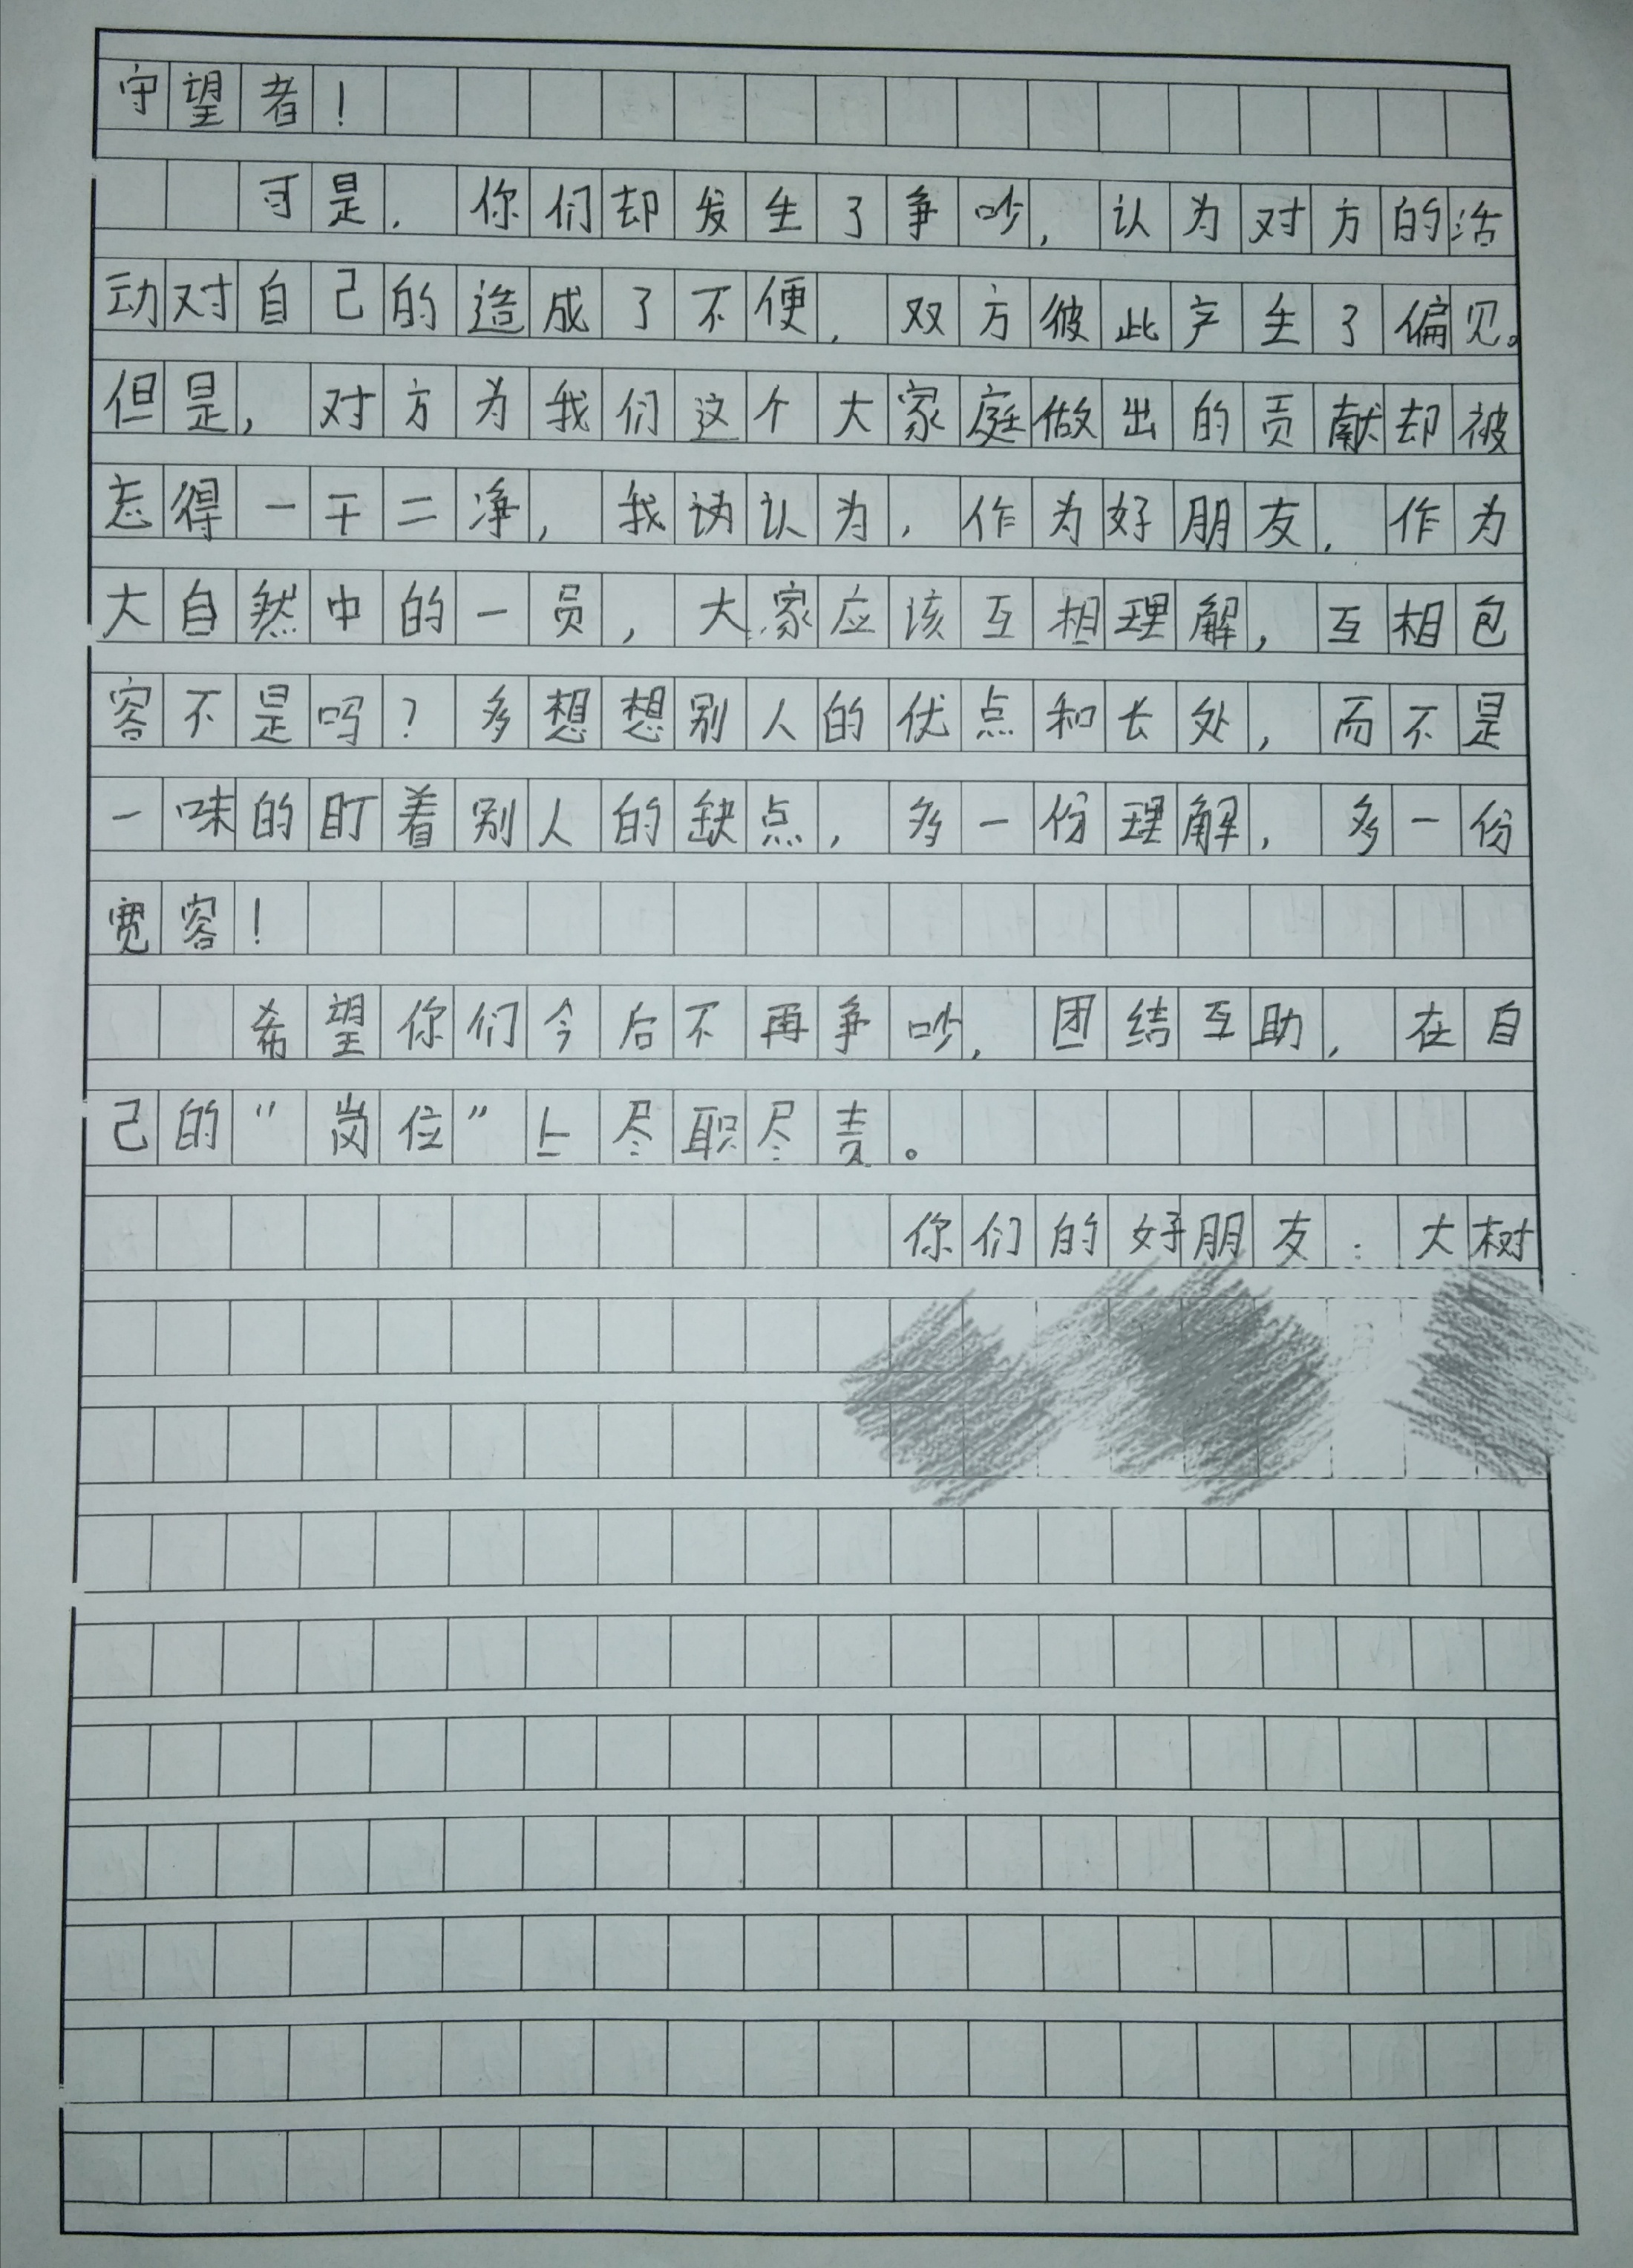 守望者！
可是，你们却发生了争吵，认为对方的活
动对自己的造成了不便，双方彼此产生了偏见。
但是，对方为我们这个大家庭做出的贡献却被
忘得一干二净，我认认为，作为好朋友，作为
大自然中的一员，大家应该互相理解，互相包
容不是吗？多想想别人的优点和长处，而不是
一味的盯着别人的缺点，多一份理解，多一份
宽容！
希望你们今后不再争吵，团结互助，在自
己的“岗位”上尽职尽责。
你们的好朋友：大树